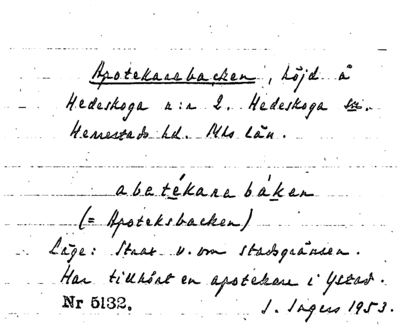 Apotekarebacken, höjd å
Hedeskoga n:r 2. Hedeskoga sn.
Herrestads hd. Mhs län.
abatékarabáken
(= Apoteksbacken)
Läge: Strax v. om stadsgränsen.
Har tillhört en apotekare i Ystad.
Nr 5132.
I. Ingers 1953.